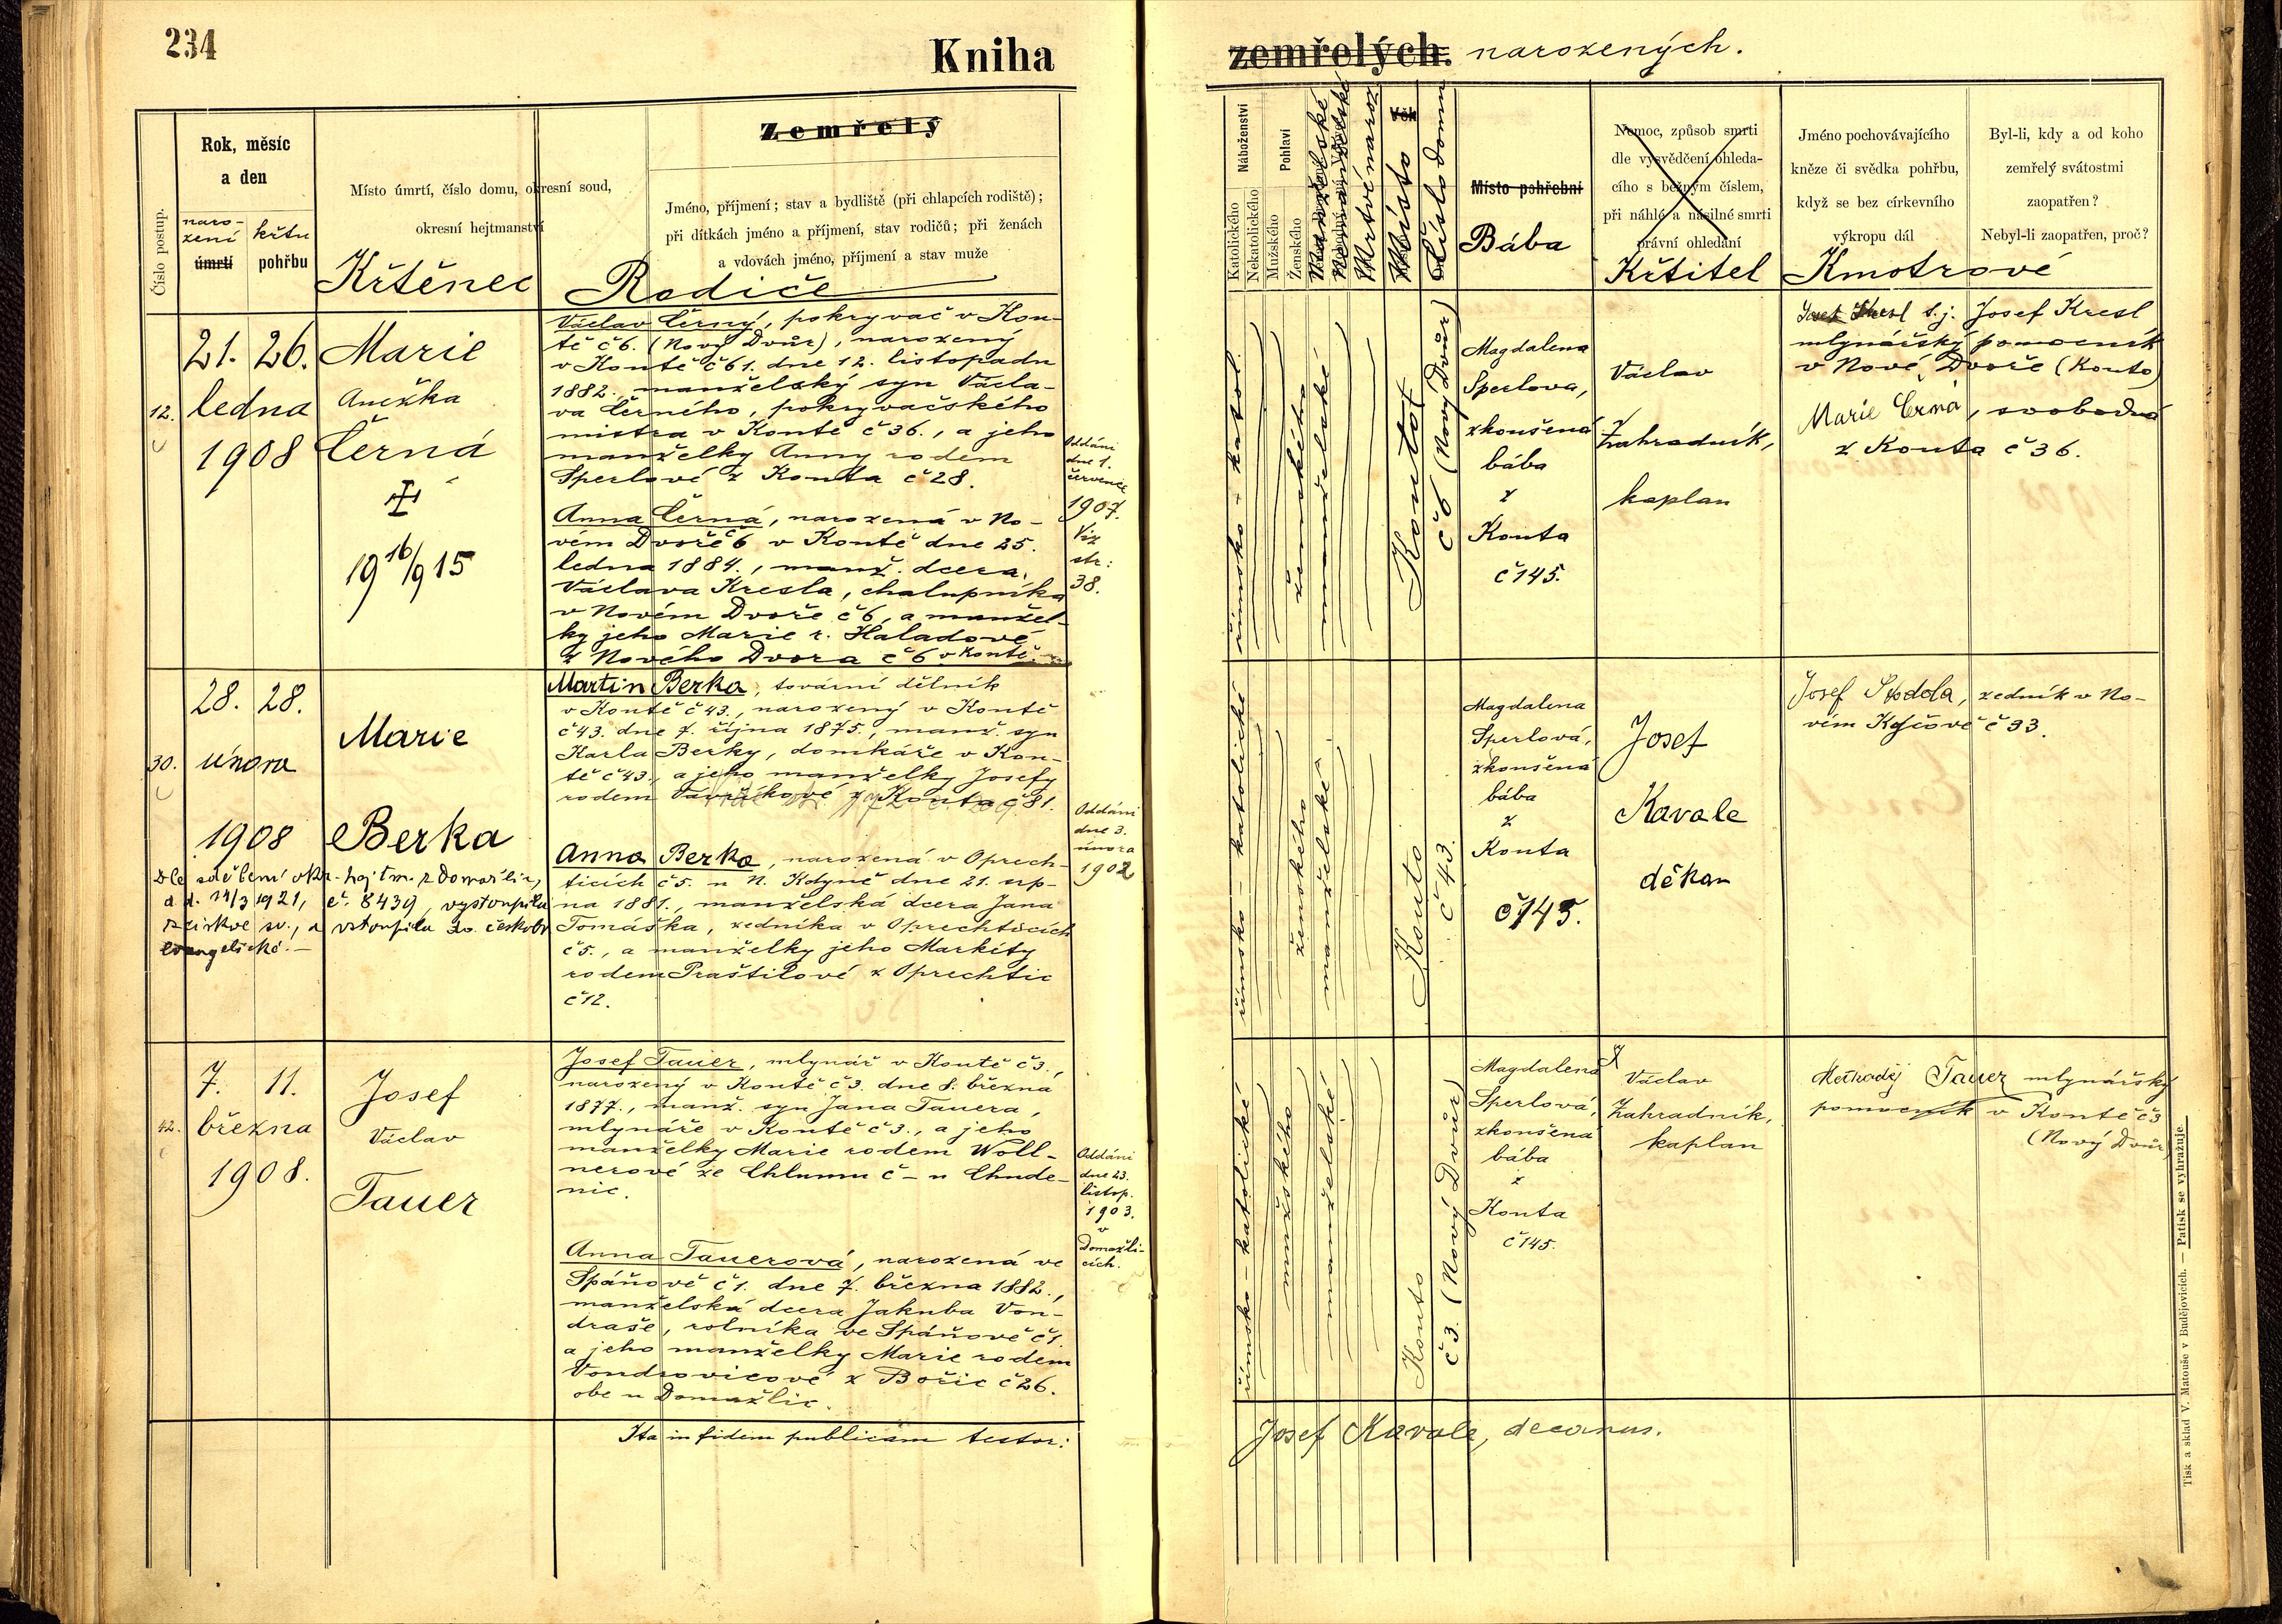 234
Kniha
zemřelých. narozených.
Číslo postup.
Rok, měsíc
a den
naro-
zení
křtu
úmrtí
pohřbu
Místo úmrtí, číslo domu, okresní soud,
okresní hejtmanství
Křtěnec
Zemřelý
Jméno, příjmení; stav a bydliště (při chlapcích rodiště);
při dítkách jméno a příjmení, stav rodičů; při ženách
a vdovách jméno, příjmení a stav muže
Rodiče
Náboženství
Katolického
Nekatolického
Pohlaví
Mužského
Ženského
Manželské
Nemanželské
Mrtvě naroz.
Místo
Číslo domu
Místo pohřební
Bába
Nemoc, způsob smrti
dle vysvědčení ohleda-
cího s běžným číslem,
při náhlé a násilné smrti
právní ohledání
Křtitel
Jméno pochovávajícího
kněze či svědka pohřbu,
když se bez církevního
výkropu dál
Byl-li, kdy a od koho
zemřelý svátostmi
zaopatřen?
Nebyl-li zaopatřen, proč?
Kmotrové
12.
21. 26.
ledna
1908
Marie
Anežka
Černá
19 16/9 15
Václav Černý, pokryvač v Kou-
tě č 6. (Nový Dvůr), narozený
v Koutě č 61. dne 12. listopadu
1882. manželský syn Václa-
va Černého, pokryvačského
mistra v Koutě č 36., a jeho
manželky Anny rodem
Sperlové z Kouta č 28.
Anna Černá, narozená v No-
vém Dvoře č 6 v Koutě dne 25.
ledna 1884., manž. dcera
Václava Kresla, chalupníka
v Novém Dvoře č 6, a manžel-
ky jeho Marie r. Haladové
z Nového Dvora č 6 v Koutě.
Oddáni
dne 1.
července
1907.
Viz
str:
38.
římsko - katol.
ženského
manželské
Kouto
č 6 (Nový Dvůr)
Magdalena
Sperlova,
zkoušená
bába
z
Kouta
č 145.
Václav
Zahradník,
kaplan
Josef Kresl t.j. Josef Kresl
mlynářský pomocník
v Nové Dvoře (Kouto)
Marie Černá, svobodná
z Kouta č 36.
30.
28. 28.
února
1908
Marie
Berka
Dle sdělení okr. hejtm. z Domažlic,
d. d. 14/3 1921, č. 8439, vystoupila
z církve sv., a vstoupila do českobr
evangelické.-
Martin Berka, tovární dělník
v Koutě č 43., narozený v Koutě
č 43. dne 7. října 1875., manž. syn
Karla Berky, domkáře v Kou-
tě č 43., a jeho manželky Josefy
rodem Vavříkové z Kouta č 81.
Anna Berka, narozená v Oprech-
ticích č 5. u N. Kdyně dne 21. srp-
na 1881., manželská dcera Jana
Tomáška, zedníka v Oprechticích
č 5., a manželky jeho Markéty
rodem Praštilové z Oprechtic
č 12.
Oddáni
dne 3.
února
1902
římsko - katolické
ženského
manželské
Kouto
č 43.
Magdalena
Sperlová,
zkoušená
bába
z
Kouta
č 145.
Josef
Kavale
děkan
Josef zedník v No-
vém č 33.
42.
7. 11.
března
1908.
Josef
Václav
Tauer
Josef Tauer, mlynář v Koutě č 3.,
narozený v Koutě č 3. dne 8. března
1877., manž. syn Jana Tauera,
mlynáře v Koutě č 3., a jeho
manželky Marie rodem Woll-
nerové ze Chlumu č - u Chude-
nic.
Anna Tauerová, narozená ve
Spáňově č 1. dne 7. března 1882.,
manželská dcera Jakuba Von-
draše, rolníka ve Spáňově č 1.
a jeho manželky Marie rodem
Vondrovicové z Bořic č 26.
obe u Domažlic.
Oddáni
dne 23.
listop.
1903.
v
Domažli-
cích.
římsko - katolické
mužského
manželské
Kouto
č 3. (Nový Dvůr)
Magdalena
Sperlová,
zkoušená
bába
z
Kouta
č 145.
Václav
Zahradník,
kaplan
Tauer mlynářský
pomocník v Koutě č 3
(Nový Dvůr)
Ita in fidem publicam testor:
Josef Kavale, decanus.
Tisk a sklad V. Matouše v Budějovicích. — Patisk se vyhražuje.